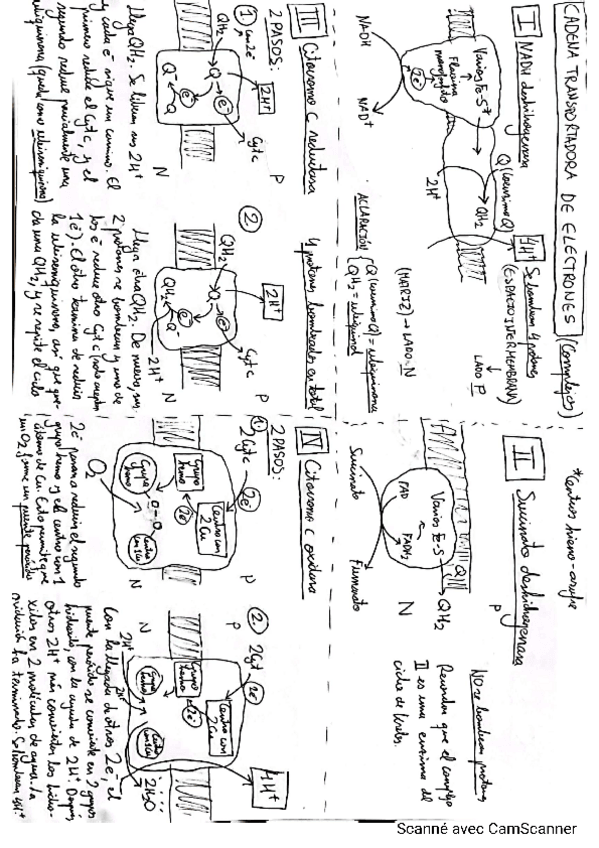 CADENA TRANSPORTADORA DE ELECTRONES (Complejos)
I NADH deshidrogenasa
4H+ Se bombean 4 protones
(ESPACIO INTERMEMBRANA)
LADO P
Varios Fe-S*
Q (coenzima Q)
QH2
2é
2H+
NADH
NAD+
(MATRIZ) → LADO N
ACLARACIÓN
Q (coenzima Q) = ubiquinona
QH2 = ubiquinol
*Centros hierro-azufre
II Succinato deshidrogenasa
NO se bombean protones
Recordar que el complejo
II es una enzima del
ciclo de Krebs.
P
Q
QH2
Varios Fe-S
FAD
FADH2
N
Succinato
Fumarato
III Citocromo C reductasa
4 protones bombeados en total
2 PASOS:
1
QH2
2H+
Cyt c
P
Q
é
Q-
N
Llega QH2. Se liberan sus 2H+
y cada é sigue un camino. El
primero reduce el Cyt c, y el
segundo reduce parcialmente una
2
QH2
2H+
Cyt c
P
Q
é
Q-
QH2
2H+
N
Llega otro QH2. De nuevo, sus
2 protones se bombean y uno de
los é reduce otro Cyt c (solo aceptan
1é). El otro termina de reducir
la ubisemiquinona, así que que-
da una QH2, y se repite el ciclo
IV Citocromo C oxidasa
2 PASOS:
1
2 Cyt c
2é
P
Centro con
2 Cu
Grupo
hemo
2é
O-O
O2
N
2é pasan a reducir el segundo
grupo hemo y el centro con 1
átomo de Cu. Esto permite que
un O2 forme un puente peróxido
2.
2 Cyt c
2é
P
4H+
Centro con
2Cu
Grupo
hemo
2é
2H+
2H+
2H2O
N
Con la llegada de otros 2é, el
puente peróxido se convierte en 2 grupos
hidroxilo, con la ayuda de 2H+. Después
otros 2H+ más convierten los hidro-
xilos en 2 moléculas de agua. La
oxidación ha terminado. Se bombean 4H+
Scanné avec CamScanner